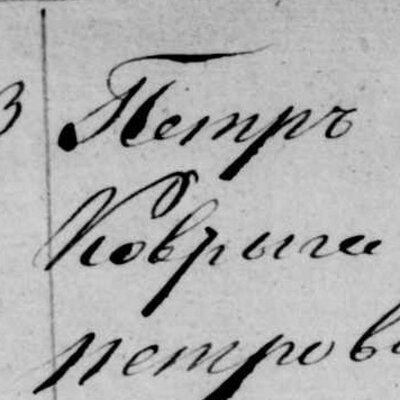 3 Петръ
Коврыга
петров